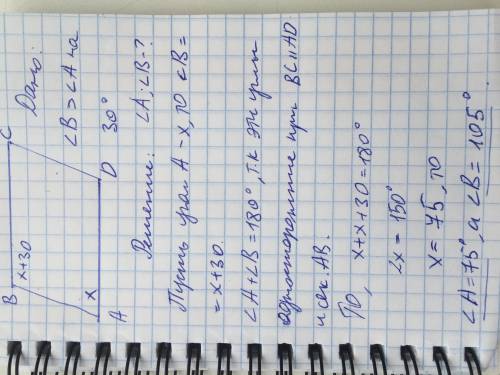 B C
x+30
x
A D
Дано:
∠B > ∠A на
30°
∠A; ∠B-?
Решение:
Пусть угол A - x, то ∠B =
= x+30.
∠A+∠B=180°, т.к эти углы
односторонние при BC||AD
и сек. AB.
То, x+x+30=180°
2x = 150°
x = 75, то
∠A=75°, а ∠B= 105°